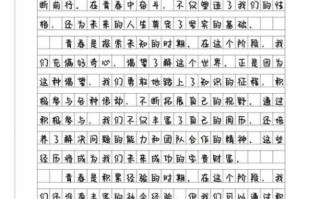 断前行。在青春中奋斗，不仅塑造了我们的性
格，还为未来的人生奠定了坚实的基础。
青春是探索未知的时期。在这个阶段，我
们充满好奇心，渴望了解这个世界。正是因为
这种渴望，我们勇敢地踏上了知识的征程，积
极参与各种活动，不断拓展自己的视野。通过
积极参与，我们不仅丰富了自己的阅历，还培
养了解决问题的能力和团队合作的精神。这些
经历将成为我们未来成功的宝贵财富。
青春是积累经验的时期。在这个阶段，我
们还没有丰富的社会经验，但我们可以通过积